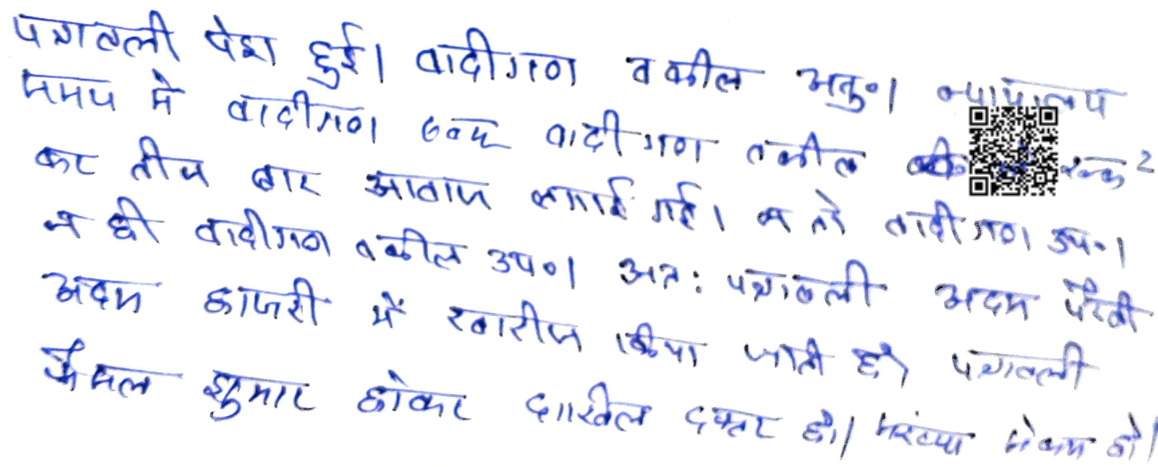 पत्रावली पेश हुई। वादीगण वकील अनु०। न्यायालय
समय में वादीगण एवम वादीगण वकील को रूक2
कर तीन बार आवाज लगाई गई। न तो वादीगण उप०।
न ही वादीगण वकील उप०। अतः पत्रावली अदम पैरवी
अदम हाजरी में खारीज किया जाता है। पत्रावली
फैसल शुमार होकर दाखिल दफ्तर हो। नम्बर से कम हो।